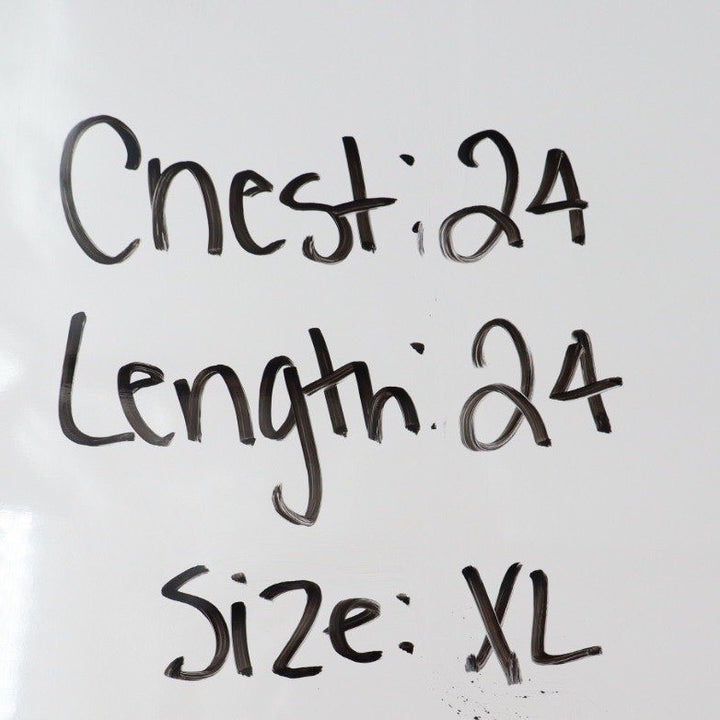 Chest: 24
Length: 24
Size: XL